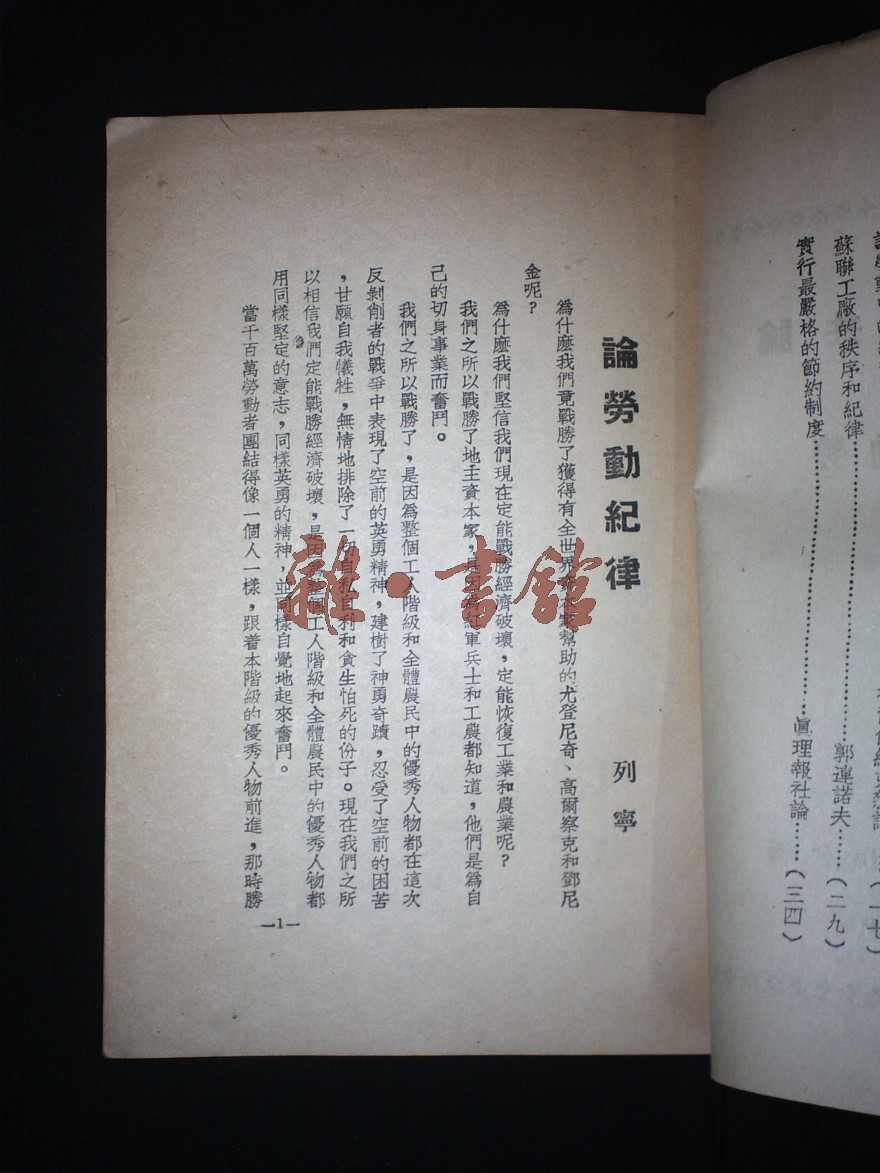 蘇聯工廠的秩序和紀律……………………郭連諾夫……(二九)
實行最嚴格的節約制度……………………眞理報社論……(三四)
論勞動紀律
列寧
爲什麽我們竟戰勝了獲得有全世界資本家幫助的尤登尼奇、高爾察克和鄧尼
金呢？
爲什麽我們堅信我們現在定能戰勝經濟破壞，定能恢復工業和農業呢？
我們之所以戰勝了地主資本家，是因爲紅軍兵士和工農都知道，他們是爲自
己的切身事業而奮鬥。
我們之所以戰勝了，是因爲整個工人階級和全體農民中的優秀人物都在這次
反剝削者的戰爭中表現了空前的英勇精神，建樹了神勇奇蹟，忍受了空前的困苦
，甘願自我犧牲，無情地排除了一切自私自利和貪生怕死的份子。現在我們之所
以相信我們定能戰勝經濟破壞，是因爲整個工人階級和全體農民中的優秀人物都
用同樣堅定的意志，同樣英勇的精神，並同樣自覺地起來奮鬥。
當千百萬勞動者團結得像一個人一樣，跟着本階級的優秀人物前進，那時勝
—1—
雜·書館